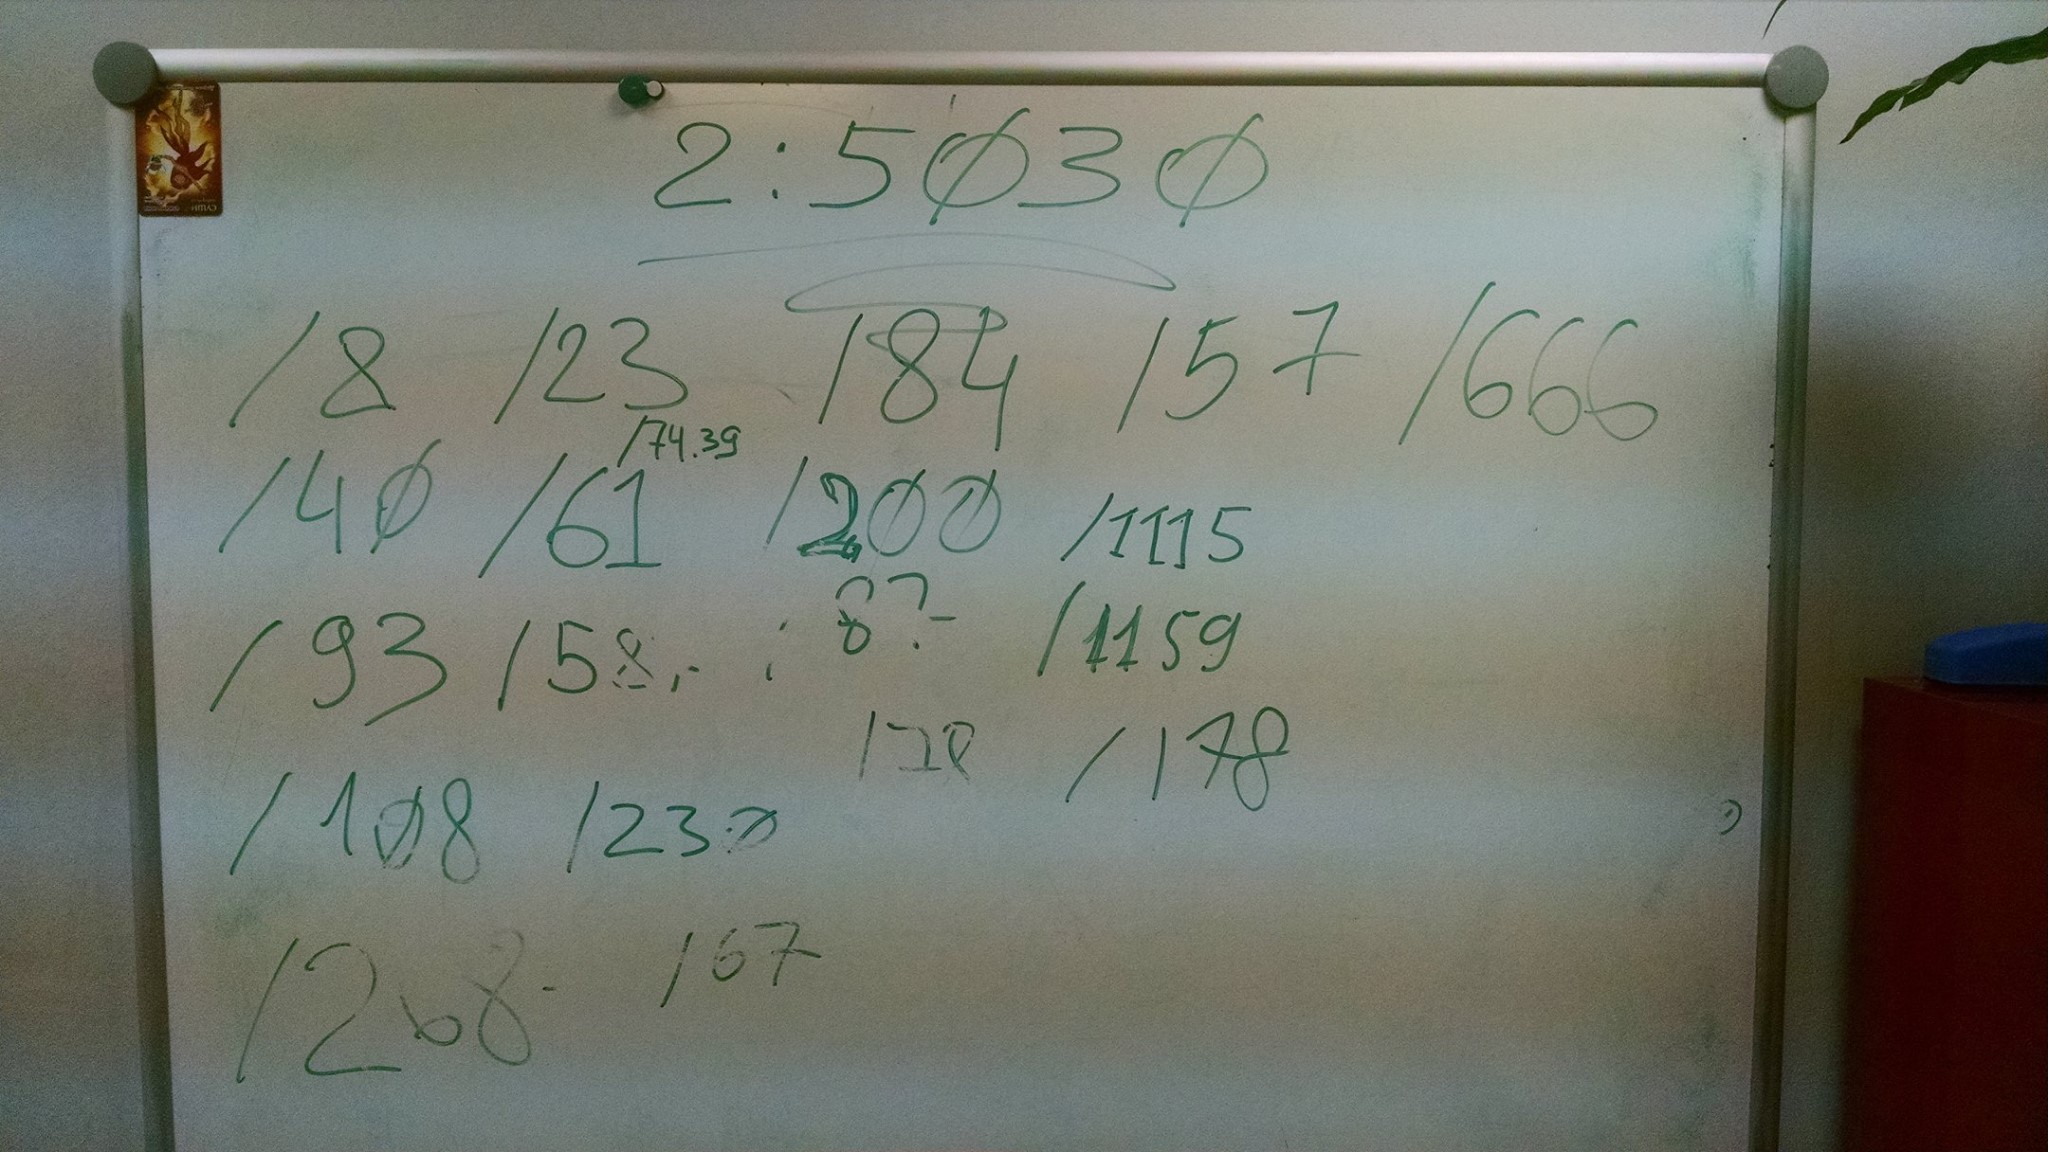 2:5030
/8 /23 /84 /57 /666
/74.39
/40 /61 /200 /1115
/93 /58 /1159
/178
/108 /230
/268 /67